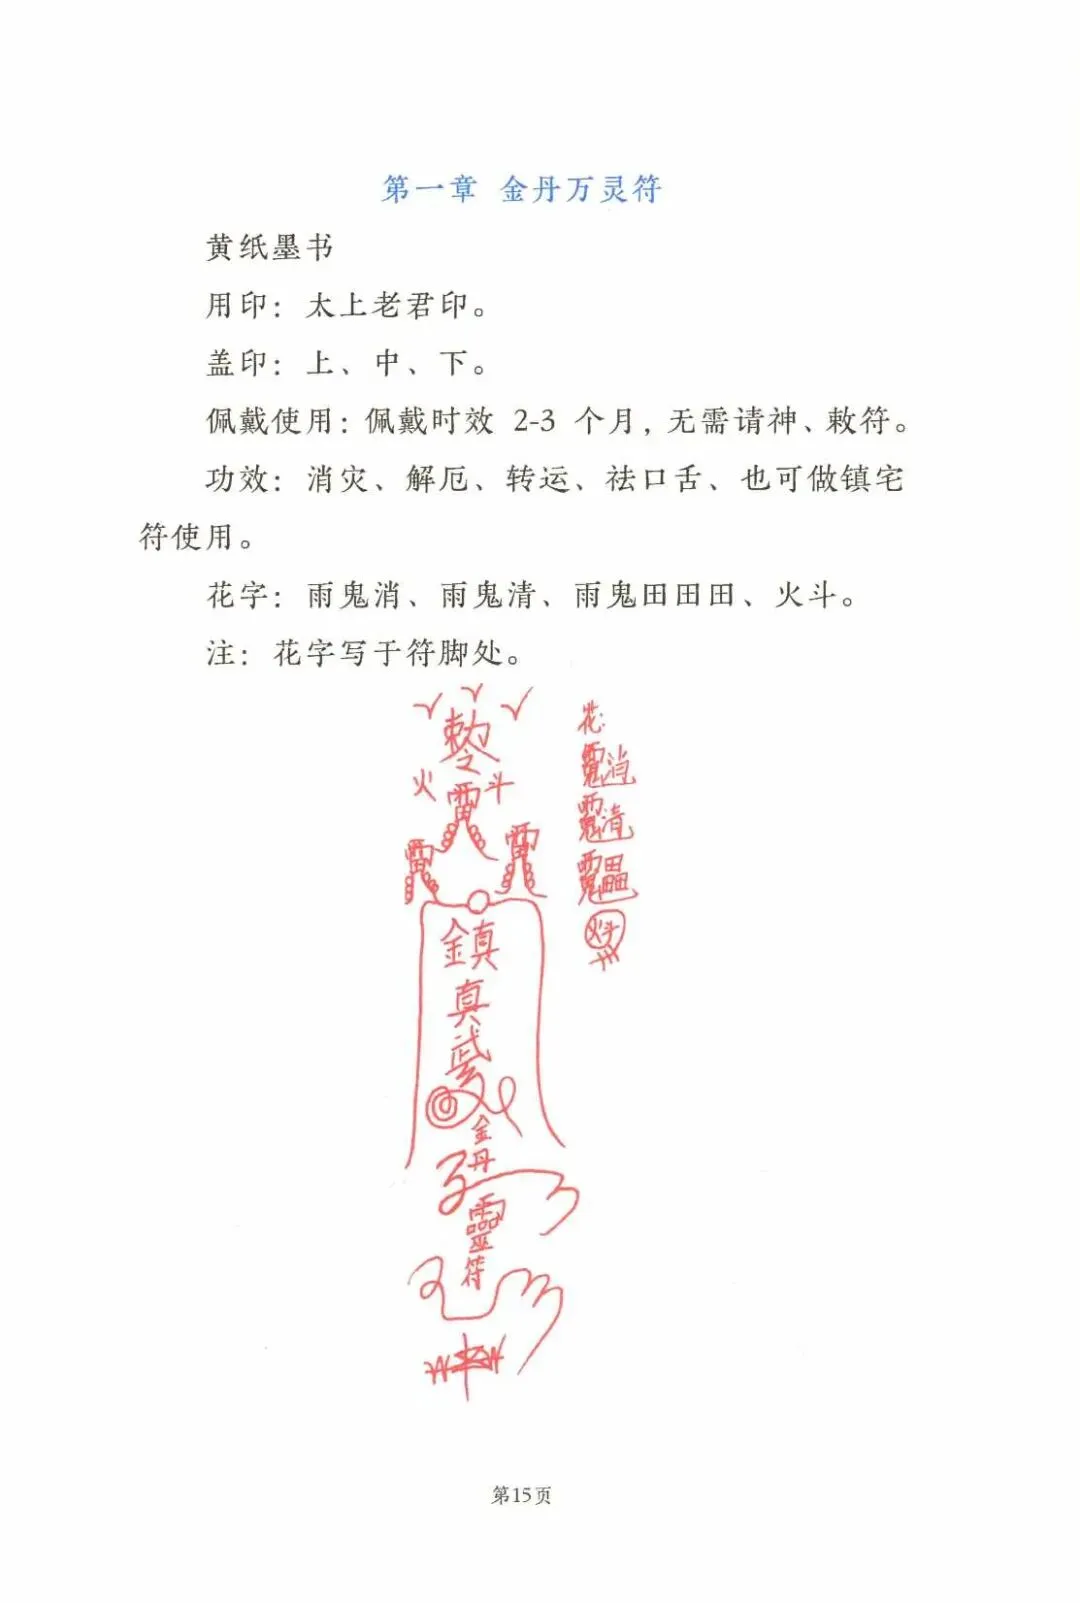 第一章 金丹万灵符
黄纸墨书
用印：太上老君印。
盖印：上、中、下。
佩戴使用：佩戴时效 2-3 个月，无需请神、敕符。
功效：消灾、解厄、转运、祛口舌、也可做镇宅
符使用。
花字：雨鬼消、雨鬼清、雨鬼田田田、火斗。
注：花字写于符脚处。
敕令
火 斗
鎮
真
武
金
丹
靈
符
花:
火斗
第15页